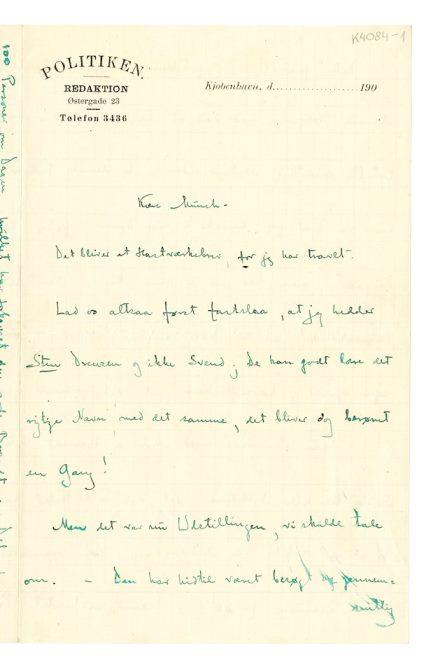 K4084-1
POLITIKEN.
REDAKTION
Østergade 23
Telefon 3436
Kjøbenhavn, d. 190
Kære Munch-
Det bliver et Hastværksbrev, for jeg har travlt.
Lad os altsaa først fastslaa, at jeg hedder
Sten Drewsen og ikke Svend; De kan godt lære det
rigtige Navn med det samme, det bliver dog berømt
en Gang!
Men det var nu Udstillingen, vi skulde tale
om. – Den har hidtil været besøgt af gennem=
snitlig
100 Personer om Dagen